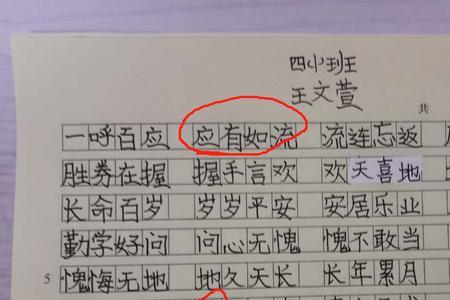 四(1)班
王文萱
共
一呼百应 应有如流 流连忘返
胜券在握 握手言欢 欢天喜地
长命百岁 岁岁平安 安居乐业
勤学好问 问心无愧 愧不敢当
5 愧悔无地 地久天长 长年累月